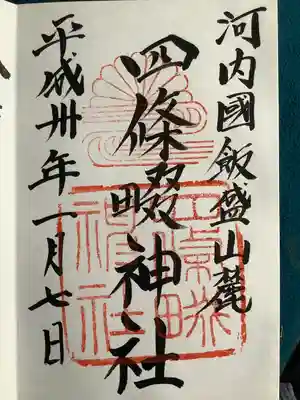 河内國飯盛山麓
四條畷神社
平成卅年一月七日